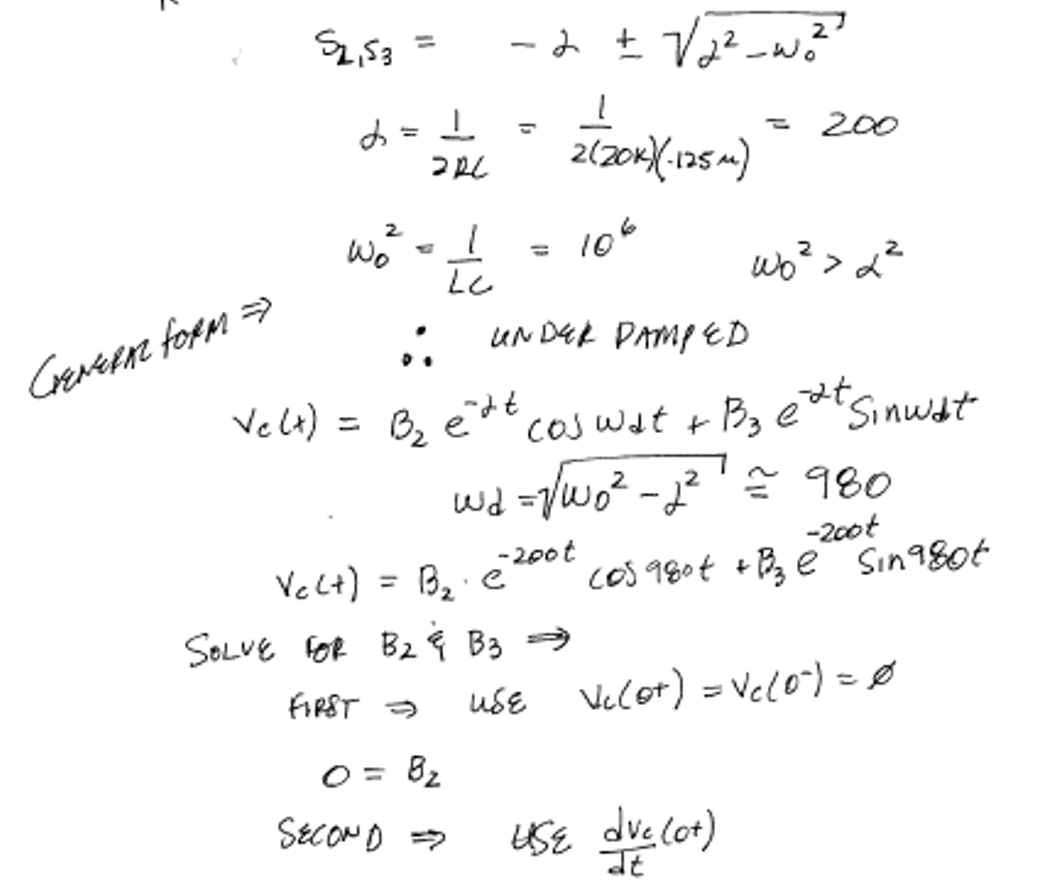 S₂,S₃ = - α ± √(α² - ω₀²)
α = 1/2RC = 1/2(20K)(.125μ) = 200
ω₀² = 1/LC = 10⁶ ω₀² > α²
GENERAL FORM ⇒
∴ UNDER DAMPED
Vc(t) = B₂ e^-αt cos ωdt + B₃ e^-αt Sin ωdt
ωd = √(ω₀² - α²) ≅ 980
Vc(t) = B₂ · e^-200t cos 980t + B₃ e^-200t Sin 980t
SOLVE FOR B₂ & B₃ ⇒
FIRST ⇒ USE Vc(0+) = Vc(0-) = ∅
0 = B₂
SECOND ⇒ USE dVc(0+)/dt